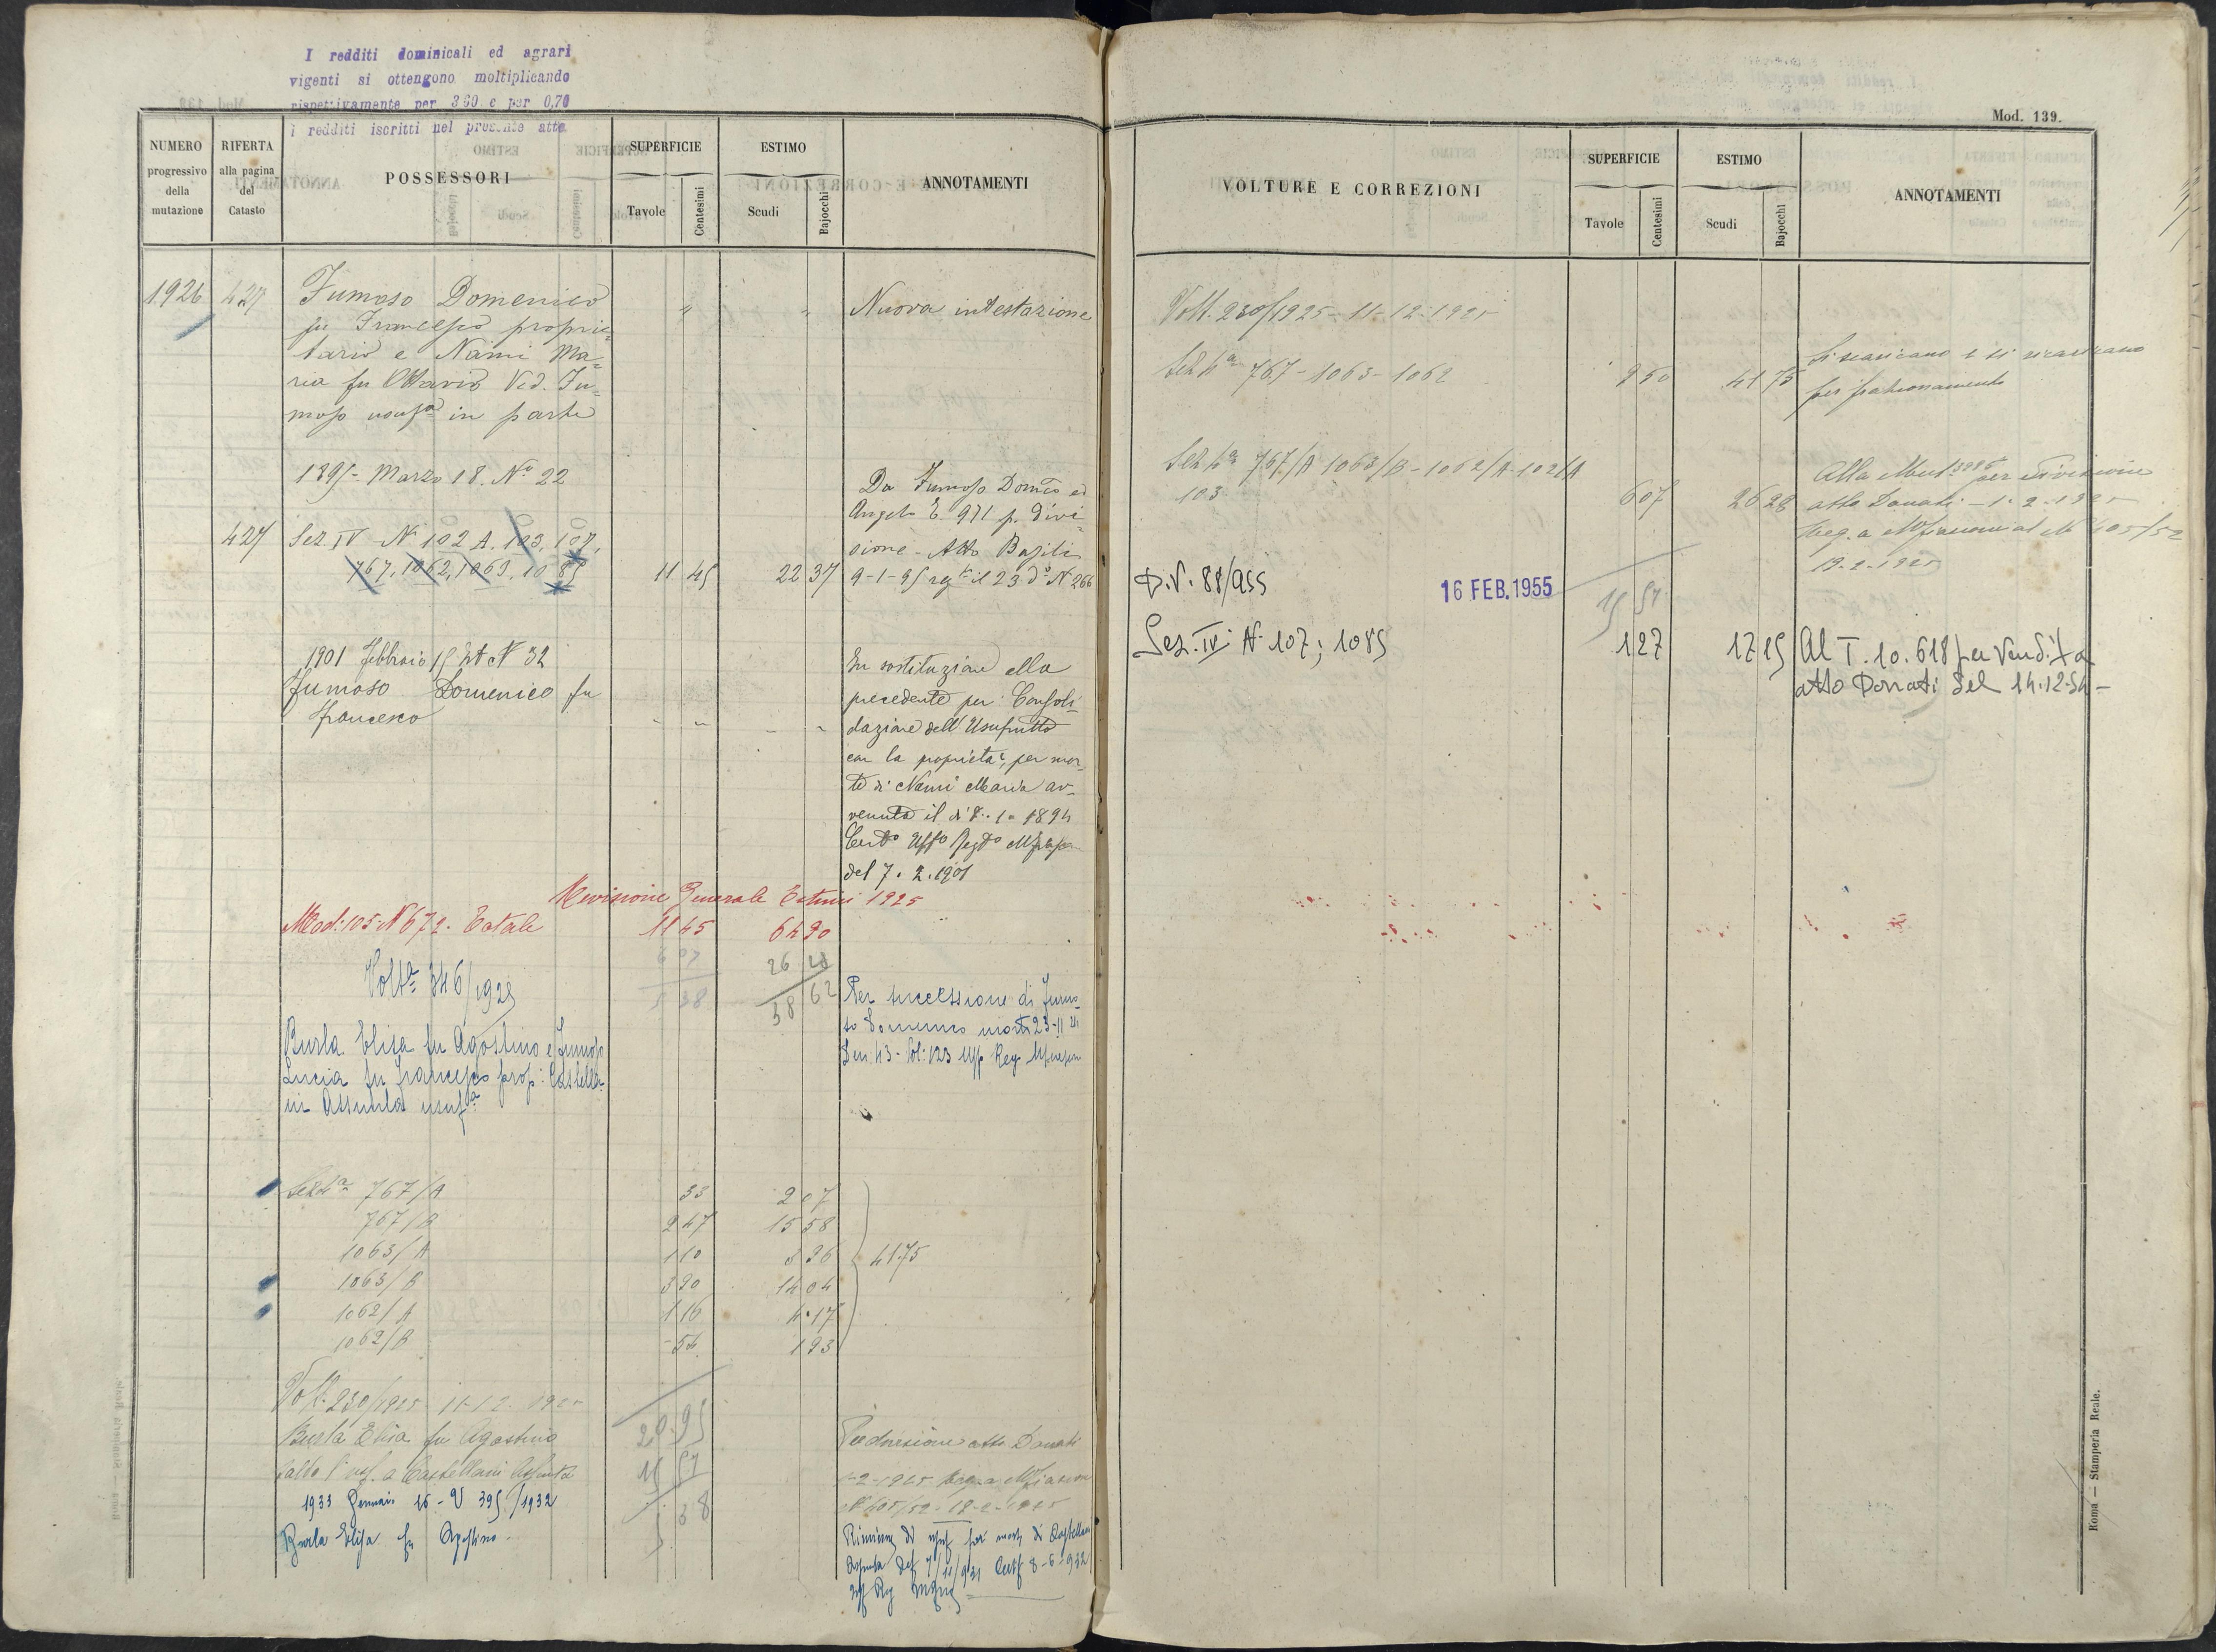 I redditi dominicali ed agrari
vigenti si ottengono moltiplicando
rispettivamente per 360 e per 0,70
i redditi iscritti nel presente atto
NUMERO
progressivo
della
mutazione
RIFERTA
alla pagina
del
Catasto
POSSESSORI
SUPERFICIE
Tavole
Centesimi
ESTIMO
Scudi
Bajocchi
ANNOTAMENTI
1926 427 Fumoso Domenico " " Nuova intestazione
fu Francesco proprie=
tario e Nami Ma=
ria fu Ottavio Ved. Fu=
moso in parte
1895 - Marzo 18. N° 22
Da Fumoso Dom° ed
Angelo E. 971 p. divi=
427 Sez. IV - N. 102 A. 103, 107,
sione - Atto Basili
767, 1062, 1063, 1085 11 45 22 37 9-1-95 reg il 23 d° N 266
1901 Febbraio 15 N 32
Fumoso Domenico fu
Francesco
In sostituzione alla
precedente per Consoli=
dazione dell'Usufrutto
con la proprietà, per mor=
te di Nami Maria av=
venuta il dì 8-1-1894
del 7.2.1901
Revisione Generale Estimi 1925
Mod: 105 N 672. Totale 11 45 64 90
6 07 26 28
Volt 346/1925
5 38 38 62
Per successione di Fumo=
so Domenico morto 23-11-24
Den. 43 - Vol: 123 Uff Reg
Burla Elisa fu Agostino e Fumoso
Lucia fu Francesco prop: Castella=
ni Assunta usuf
Sez 4 767/A 33 2 07
767/B 2 47 15 58
1063/A 1 10 3 96
1063/B 3 90 14 04 4175
1062/A 1 16 4 17
1062/B - 54 1 93
Volt. 230/1925 11-12-1925
Burla Elisa fu Agostino
salvo l'usf. a Castellani Assunta
20 95
15 57
5 38
Per divisione atto Donati
1-2-1925
N 405/52 - 19-2-1925
1933 Gennaio 16 - V 395/1932
Burla Elisa fu Agostino
Riunione di usuf per morte di Castellani
Assunta del 7/11/931 Certf 8-6-932
Uff Reg
Mod. 139.
VOLTURE E CORREZIONI
SUPERFICIE
Tavole
Centesimi
ESTIMO
Scudi
Bajocchi
ANNOTAMENTI
Volt. 230/1925 - 11-12-1925
Sez 4 767 - 1063 - 1062 9 50 41 75
Si scaricano e si ricaricano
per frazionamento
Sez 4 767/A 1063/B - 1062/A - 102/A
103 6 07 26 28
per divisione
atto Donati - 1-2-1925
Reg. a al N 405/52
19-2-1925
D.V. 88/955 16 FEB. 1955 15 57
Sez. IV N. 107; 1085 1 27 17 15 Al T. 10.618 per vendita
atto Donati del 14.12.54 -
Roma — Stamperia Reale.